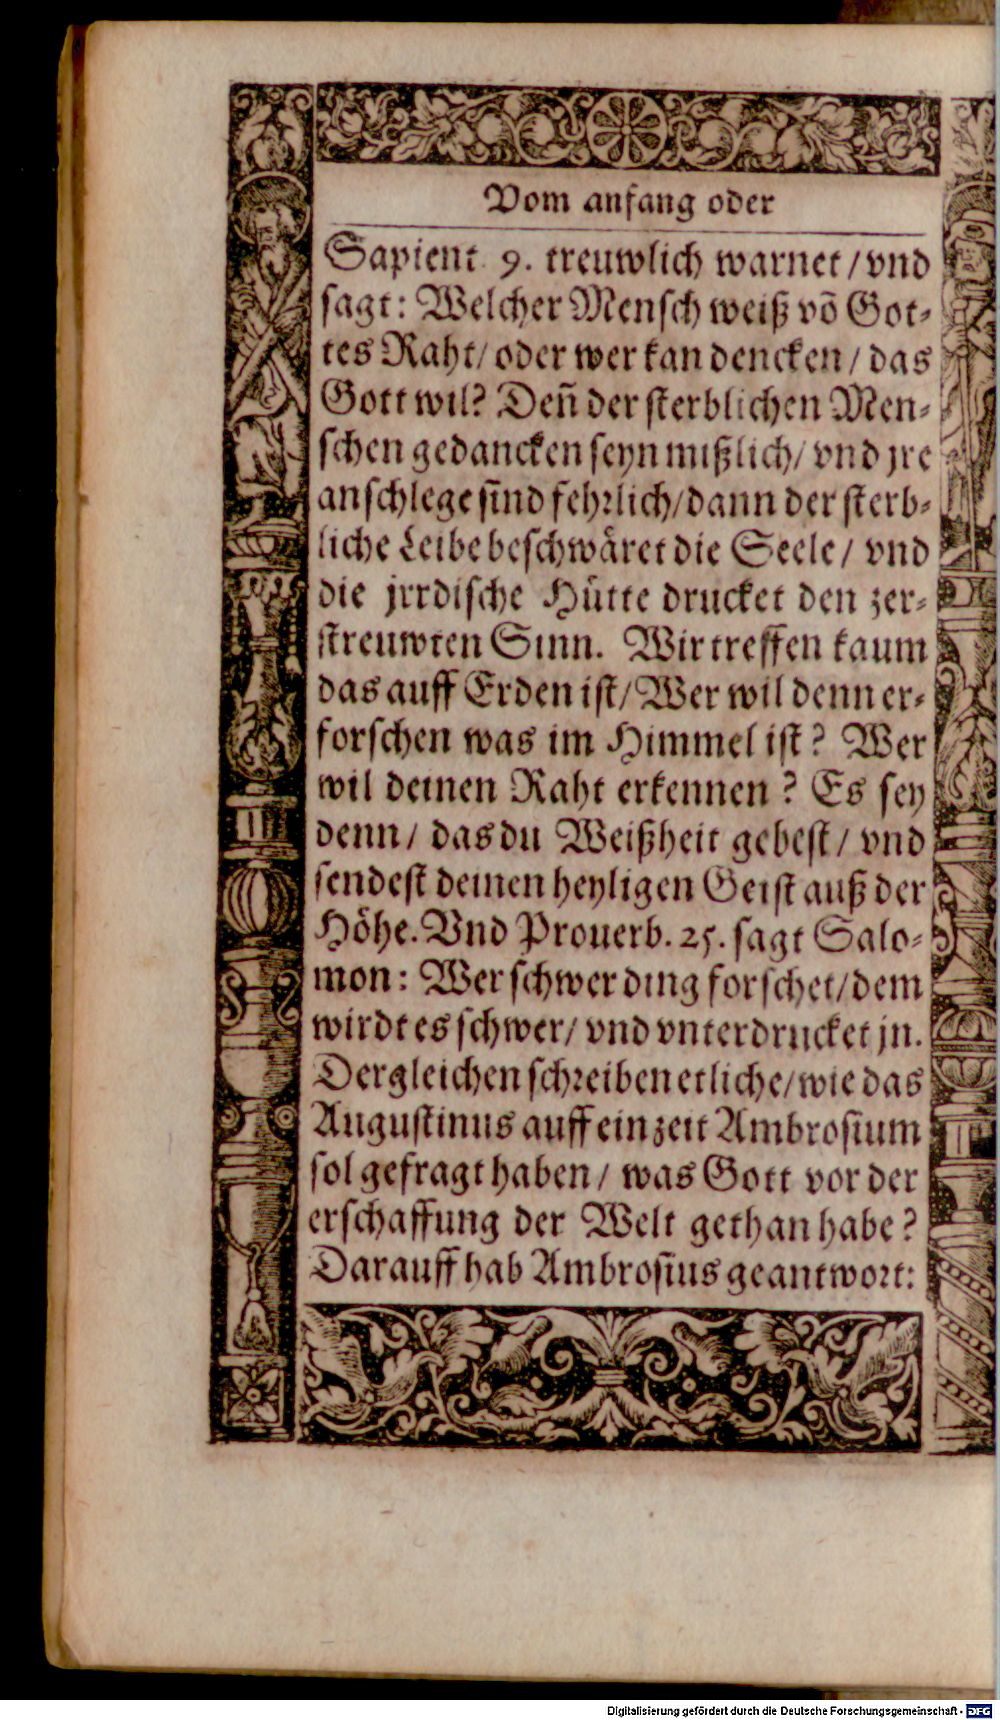 Vom anfang oder
Sapient 9. treuwlich warnet / vnd
sagt: Welcher Mensch weiß võ Got-
tes Raht / oder wer kan dencken / das
Gott wil? Deñ der sterblichen Men-
schen gedancken seyn mißlich / vnd jre
anschlege sind fehrlich / dann der sterb-
liche Leibe beschwäret die Seele / vnd
die jrrdische Hütte drucket den zer-
streuwten Sinn. Wir treffen kaum
das auff Erden ist / Wer wil denn er-
forschen was im Himmel ist? Wer
wil deinen Raht erkennen? Es sey
denn / das du Weißheit gebest / vnd
sendest deinen heyligen Geist auß der
Höhe. Vnd Prouerb. 25. sagt Salo-
mon: Wer schwer ding forschet / dem
wirdt es schwer / vnd vnterdrucket jn.
Dergleichen schreiben etliche / wie das
Augustinus auff ein zeit Ambrosium
sol gefragt haben / was Gott vor der
erschaffung der Welt gethan habe?
Darauff hab Ambrosius geantwort:
Digitalisierung gefördert durch die Deutsche Forschungsgemeinschaft - DFG